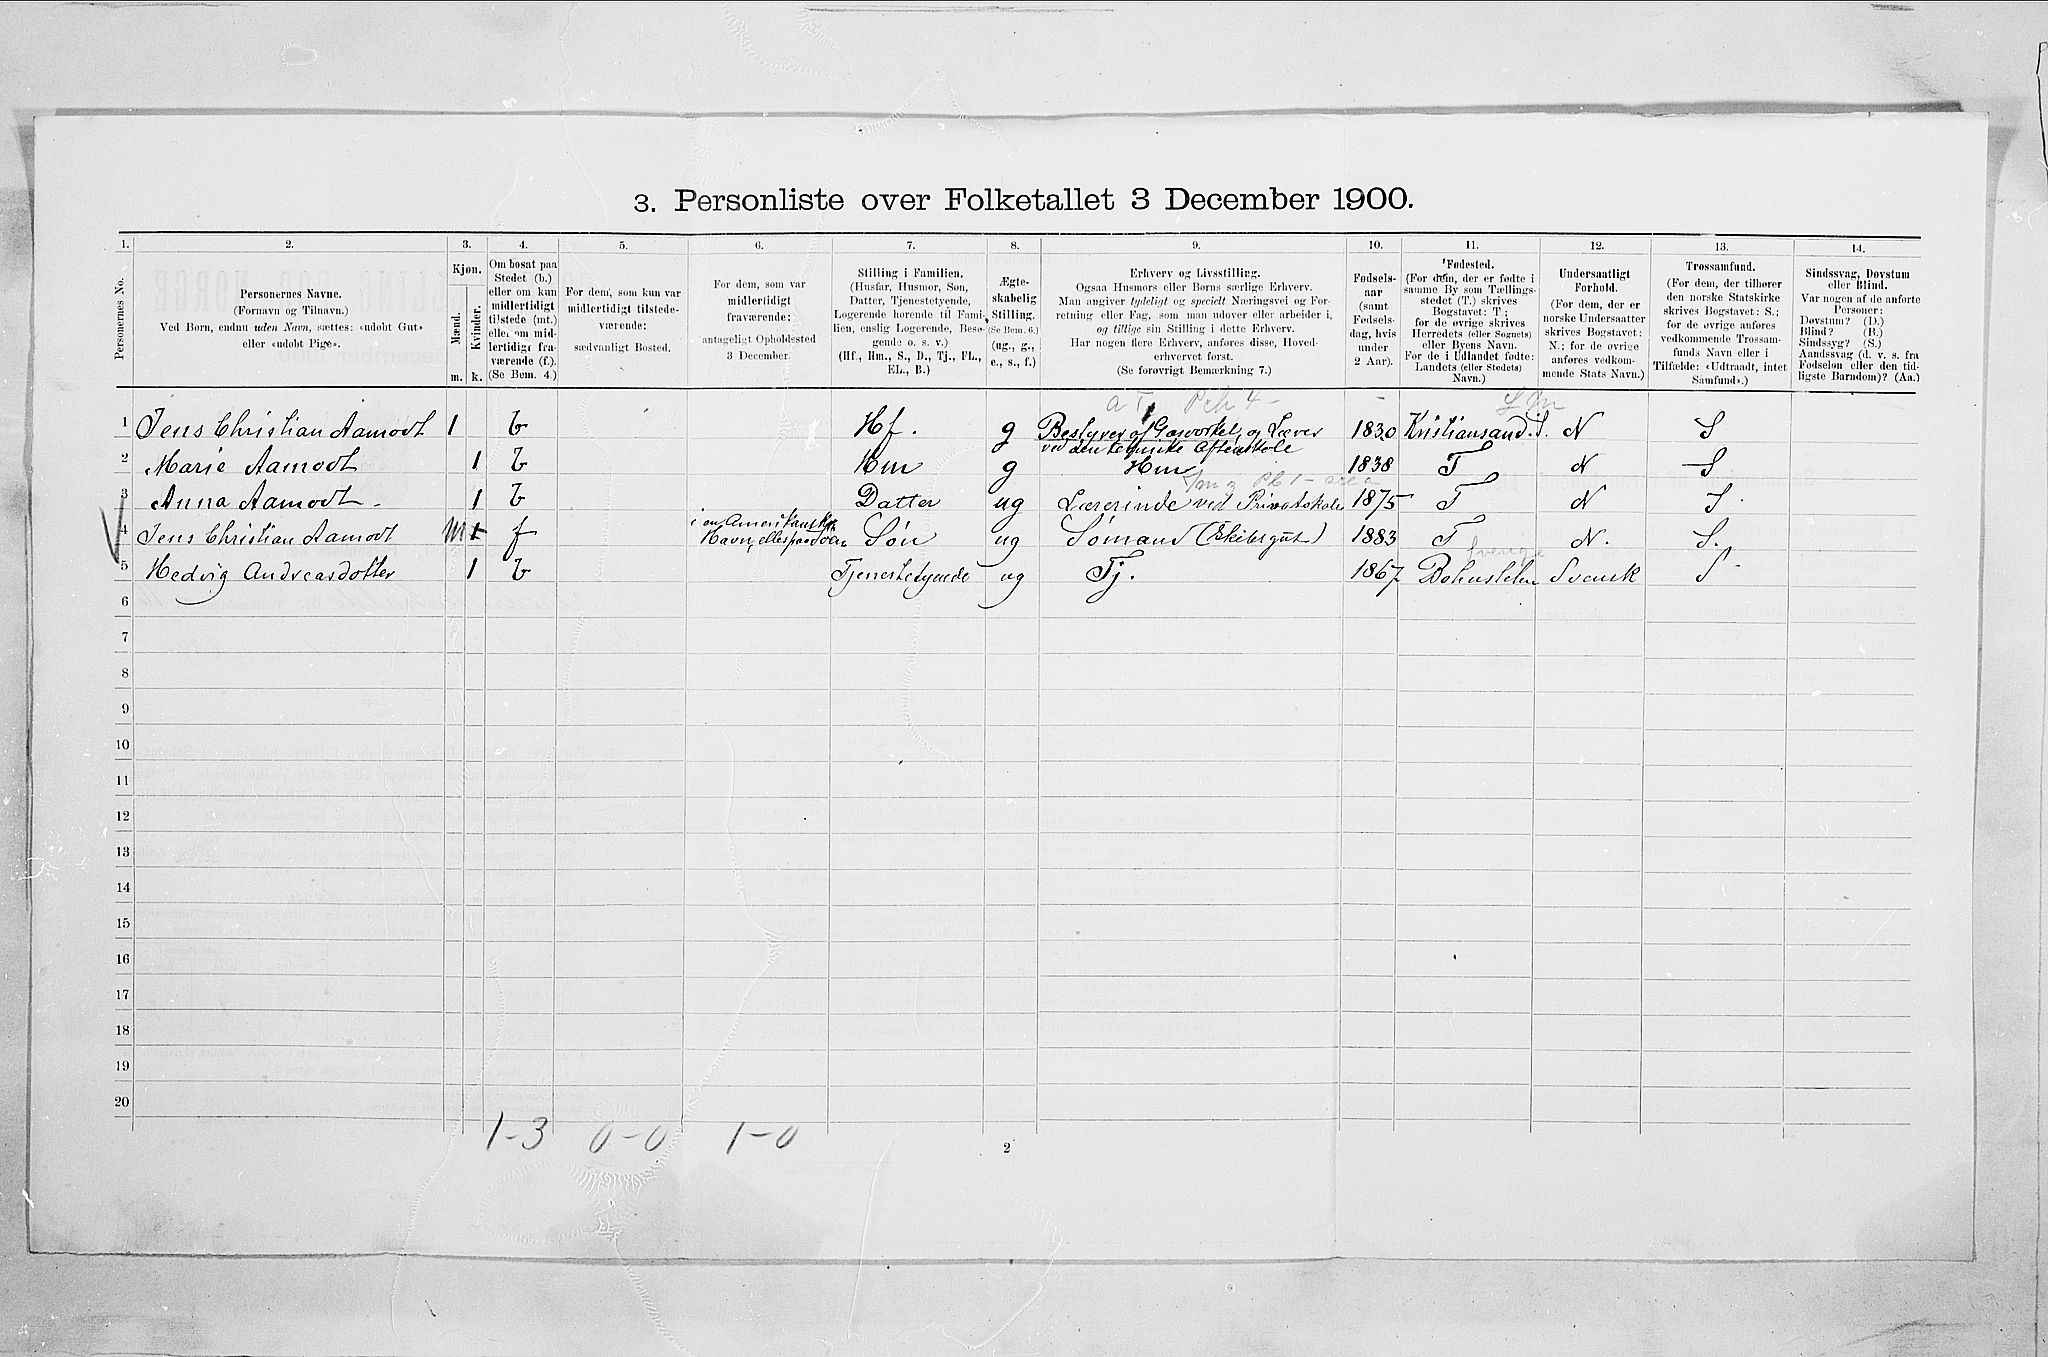 3. Personliste over Folketallet 3 December 1900.
1. 2. 3. 4. 5. 6. 7. 8. 9. 10. 11. 12. 13. 14.
Personernes No.
Personernes Navne.
(Fornavn og Tilnavn.)
Ved Børn, endnu uden Navn, sættes: «udøbt Gut»
eller «udøbt Pige».
Kjøn.
Mænd.
Kvinder.
m. k.
Om bosat paa
Stedet (b.)
eller om kun
midlertidigt
tilstede (mt.)
eller om mid-
lertidigt fra-
værende (f.).
(Se Bem. 4.)
For dem, som kun var
midlertidigt tilstede-
værende:
sædvanligt Bosted.
For dem, som var
midlertidigt
fraværende:
antageligt Opholdssted
3 December.
Stilling i Familien.
(Husfar, Husmor, Søn,
Datter, Tjenestetyende,
Logerende hørende til Fami-
lien, enslig Logerende, Besø-
gende o. s. v.)
(Hf., Hm., S., D., Tj., FL.,
EL., B.)
Ægte-
skabelig
Stilling.
(Se Bem. 6.)
(ug., g.,
e., s., f.)
Erhverv og Livsstilling.
Ogsaa Husmors eller Børns særlige Erhverv.
Man angiver tydeligt og specielt Næringsvei og For-
retning eller Fag, som man udøver eller arbeider i,
og tillige sin Stilling i dette Erhverv.
Har nogen flere Erhverv, anføres disse, Hoved-
erhvervet først.
(Se forøvrigt Bemærkning 7.)
Fødsels-
aar
(samt
Fødsels-
dag, hvis
under
2 Aar).
Fødested.
(For dem, der er fødte i
samme By som Tællings-
stedet (T.) skrives
Bogstavet: T.;
for de øvrige skrives
Herredets (eller Sognets)
eller Byens Navn.
For de i Udlandet fødte:
Landets (eller Stedets)
Navn.)
Undersaatligt
Forhold.
(For dem, der er
norske Undersaatter
skrives Bogstavet:
N.; for de øvrige
anføres vedkom-
mende Stats Navn.)
Trossamfund.
(For dem, der tilhører
den norske Statskirke
skrives Bogstavet: S.;
for de øvrige anføres
vedkommende Trossam-
funds Navn eller i
Tilfælde: «Udtraadt, intet
Samfund».)
Sindssvag, Døvstum
eller Blind.
Var nogen af de anførte
Personer:
Døvstum? (D.)
Blind? (B.)
Sindssyg? (S.)
Aandssvag (d. v. s. fra
Fødselen eller den tid-
ligste Barndom)? (Aa.)
1 Jens Christian Aamodt 1 b Hf. g Bestyrer af Gasværket, og Lærer 1830 Kristiansand. S. N S
ved den tekniske Aftenskole
2 Marie Aamodt 1 b Hm g Hm 1838 T N S
3 Anna Aamodt 1 b Datter ug Lærerinde ved Privatskole 1875 T N S.
i en Amerikansk
4 Jens Christian Aamodt f Havn, eller paa Søen Søn ug Sømand (Skibsgut) 1883 T N. S.
Sverige
5 Hedvig Andreasdotter 1 b Tjenestetyende ug Tj. 1867 Bohuslehn Svensk S
6
7
8
9
10
11
12
13
14
15
16
17
18
19
20
1-3 0-0 1-0
2